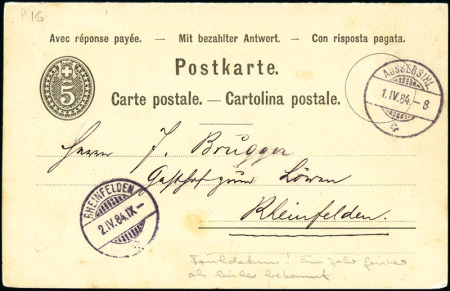 P 16
Avec réponse payée. — Mit bezahlter Antwort. — Con risposta pagata.
Postkarte.
Carte postale. — Cartolina postale.
5
AUSSERSIHL
1.IV.84.-8
Herrn J. Brugger
Gasthof zum Löwen
Rheinfelden.
RHEINFELDEN
2.IV.84.IX-
Frühdatum! Ein Jahr früher
als bisher bekannt